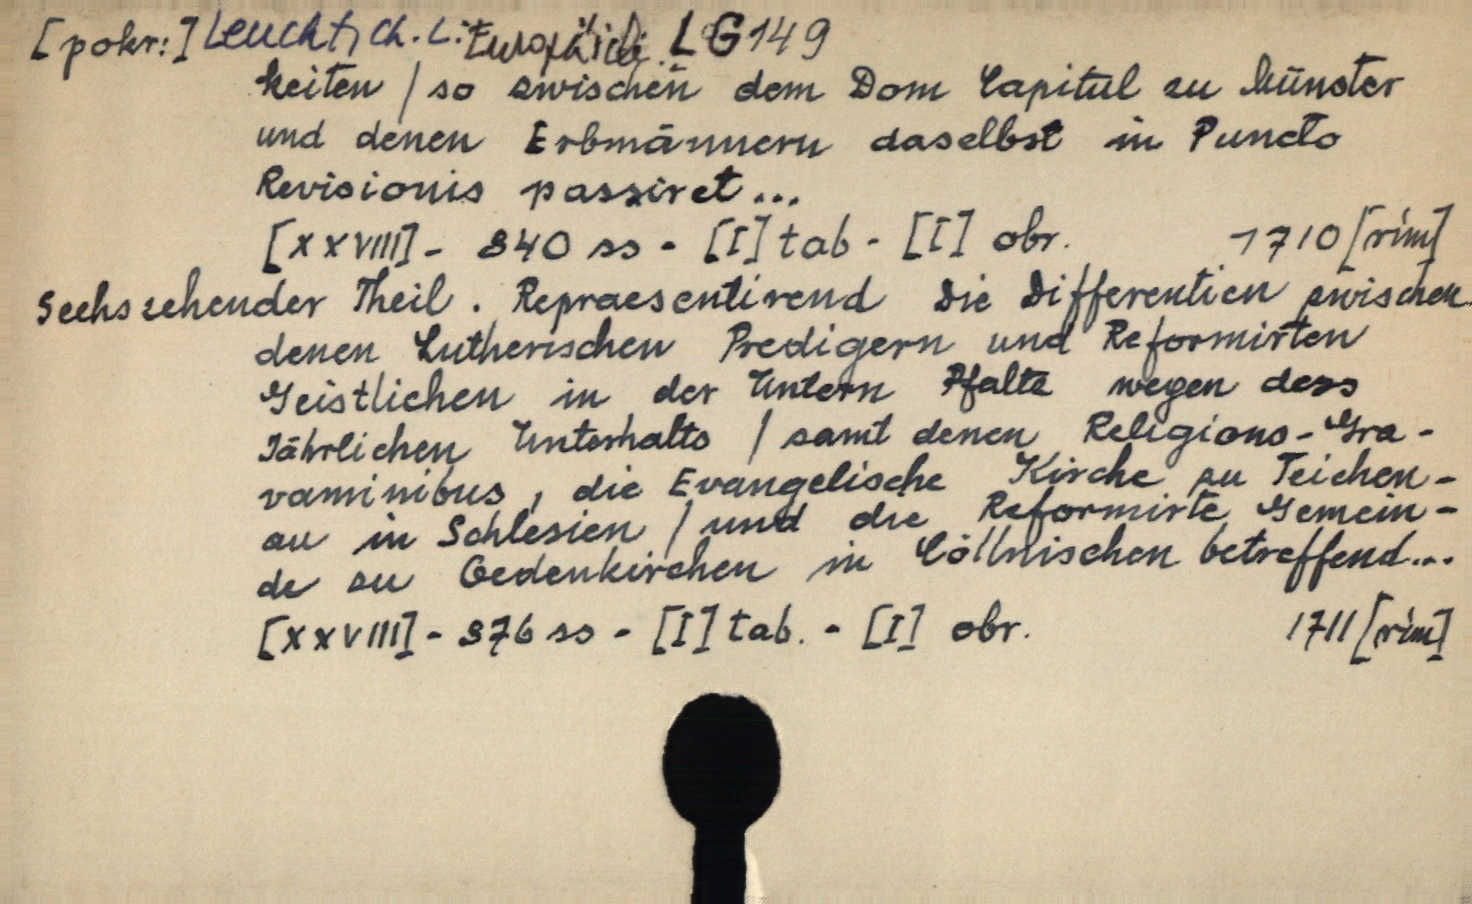 [pokr:] Leucht, Ch. L: Europäische LG149
keiten / so zwischen dem Dom Capitul zu Münster
und denen Erbmännern daselbst in Puncto
Revisionis passiret...
[XXVIII] - 840 ss - [I] tab - [I] obr. 1710 [rím]
Sechszehender Theil. Repraesentirend Die Differentien zwischen
denen Lutherischen Predigern und Reformirten
Geistlichen in der Untern Pfaltz wegen dess
Jährlichen Unterhalts / samt denen Religions-Gra-
vaminibus, die Evangelische Kirche zu Teichen-
au in Schlesien / und die Reformirte Gemein-
de zu Oedenkirchen in Cöllnischen betreffend...
[XXVIII] - 876 ss - [I] tab. - [I] obr. 1711 [rím]